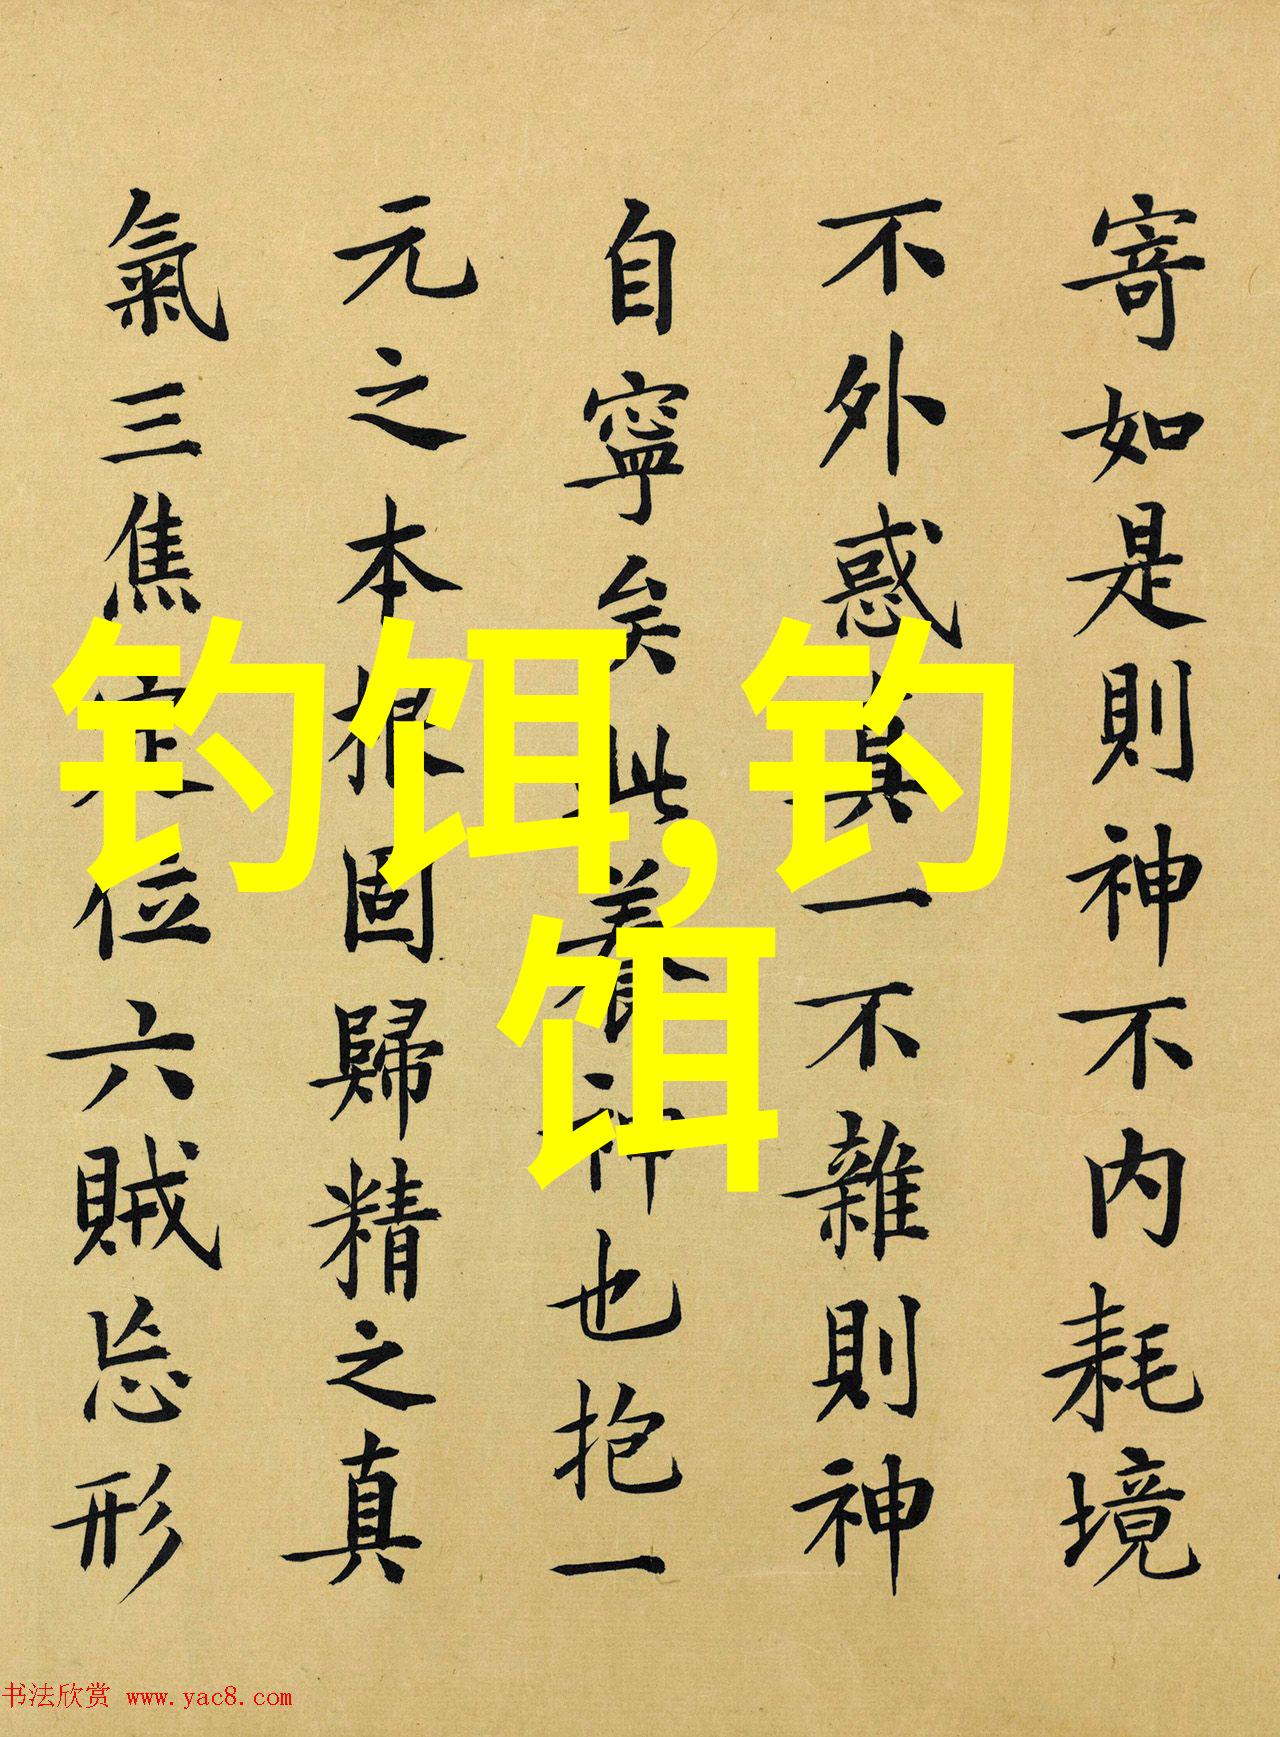 寄如是則神不内耗境
不外惑真一不雜則神
自寧矣此養神也抱一
元之本根固歸精之真
氣三焦定位六賊忘形
钓饵,钓
饵
书法欣赏 www.yac8.com